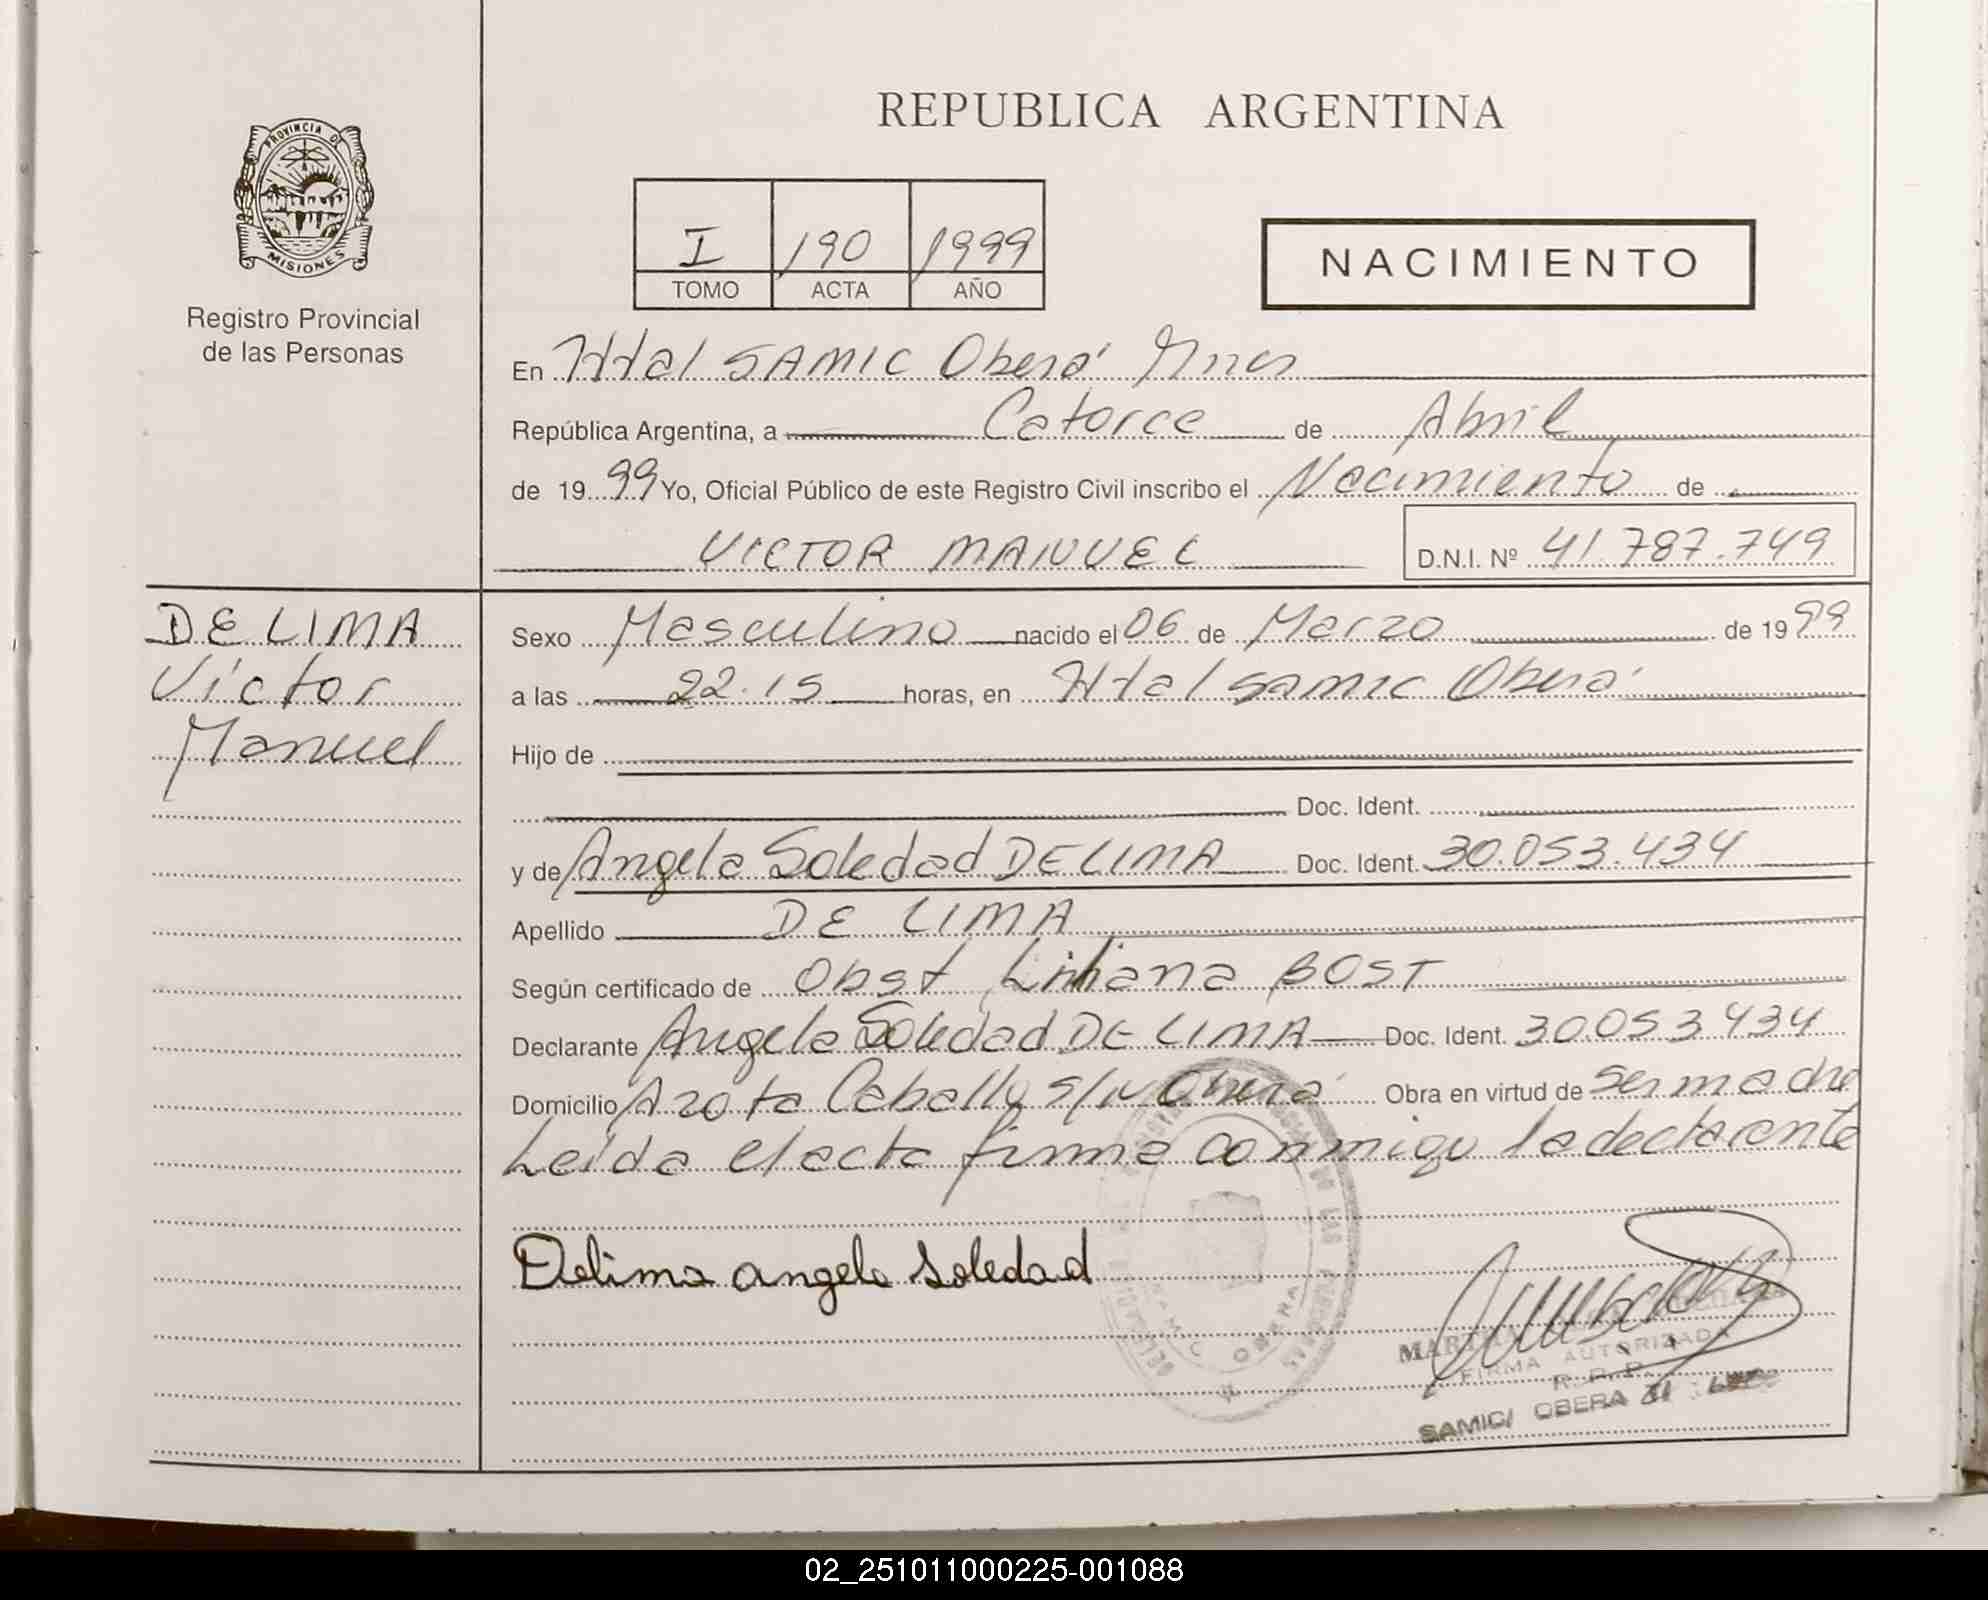 REPUBLICA ARGENTINA
PROVINCIA DE
MISIONES
Registro Provincial
de las Personas
I 190 1999
TOMO ACTA AÑO
NACIMIENTO
En Htal SAMIC Oberá Mnes
República Argentina, a Catorce de Abril
de 1999 Yo, Oficial Público de este Registro Civil inscribo el Nacimiento de
VICTOR MANUEL D.N.I. Nº 41.787.749
DE LIMA
Víctor
Manuel
Sexo Masculino nacido el 06 de Marzo de 1999
a las 22.15 horas, en Htal SAMIC Oberá
Hijo de
Doc. Ident.
y de Angela Soledad DE LIMA Doc. Ident. 30.053.434
Apellido DE LIMA
Según certificado de Obst Liliana BOST
Declarante Angela Soledad DE LIMA Doc. Ident. 30.053.434
Domicilio Azota Caballo S/N Oberá Obra en virtud de ser madre
Leída el acta firma conmigo la declarante
Delima angela Soledad
OBERA
FIRMA AUTORIZADA
R. P. P.
SAMIC/ OBERA
02_251011000225-001088